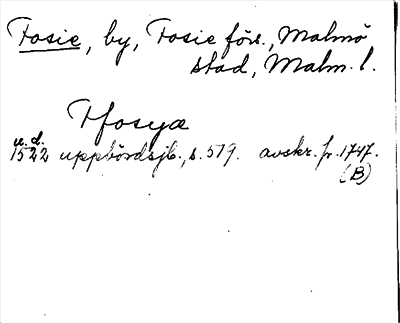 Fosie, by, Fosie förs., Malmö
stad, Malm. l.
Tfosyæ
u. d.
1522 uppbördsjb., s. 519. avskr. fr. 1747.
(B)